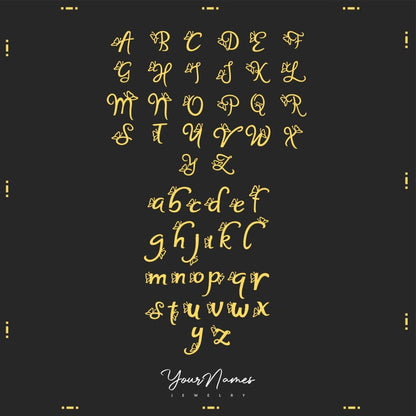 A B C D E F
G H I J K L
M N O P Q R
S T U V W X
Y Z
a b c d e f
g h j i k l
m n o p q r
s t u v w x
y z
YourNames
JEWELRY